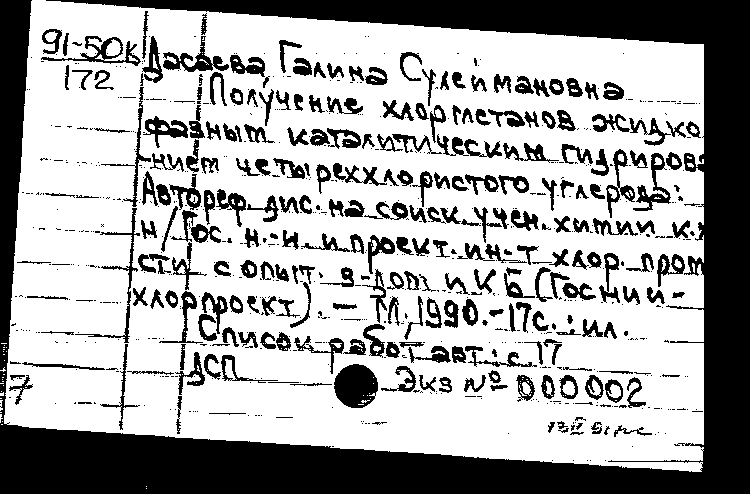 91-50к
172
Дасаева Галина Сулеймановна
Получение хлорметанов жидко
фазным каталитическим гидрирова
нием четыреххлористого углерода:
Автореф. дис. на соиск. учен. химии к.х
н/Гос. н.-и. и проект. ин-т хлор. пром
сти с опыт. з-дом и КБ (Госнии-
хлорпроект). – М., 1990.-17с.: ил.
Список работ авт.: с.17
ДСП
Экз № 000002
7